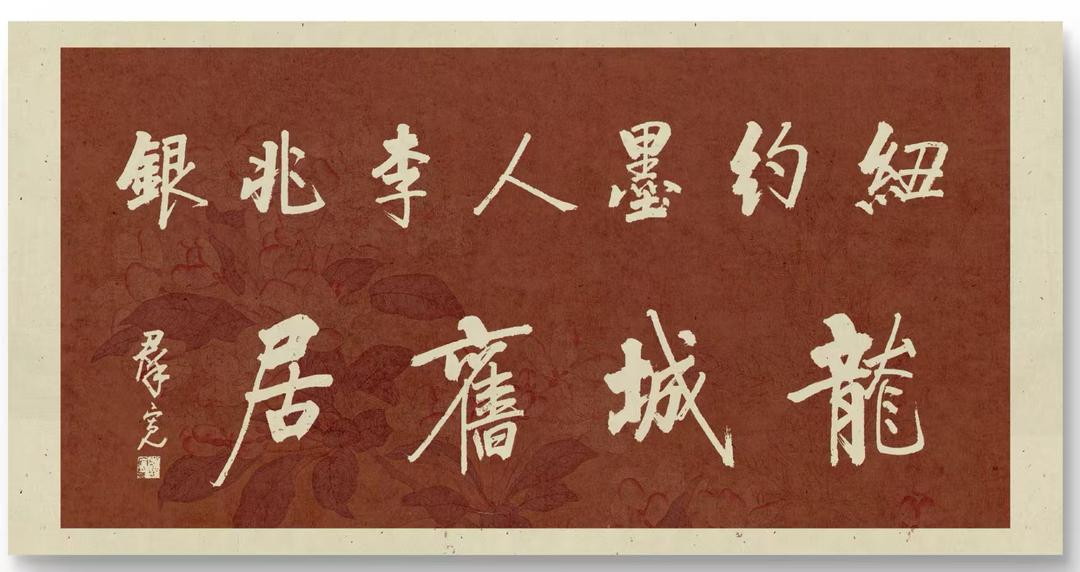 紐约墨人李兆銀
龍城舊居
羣寛